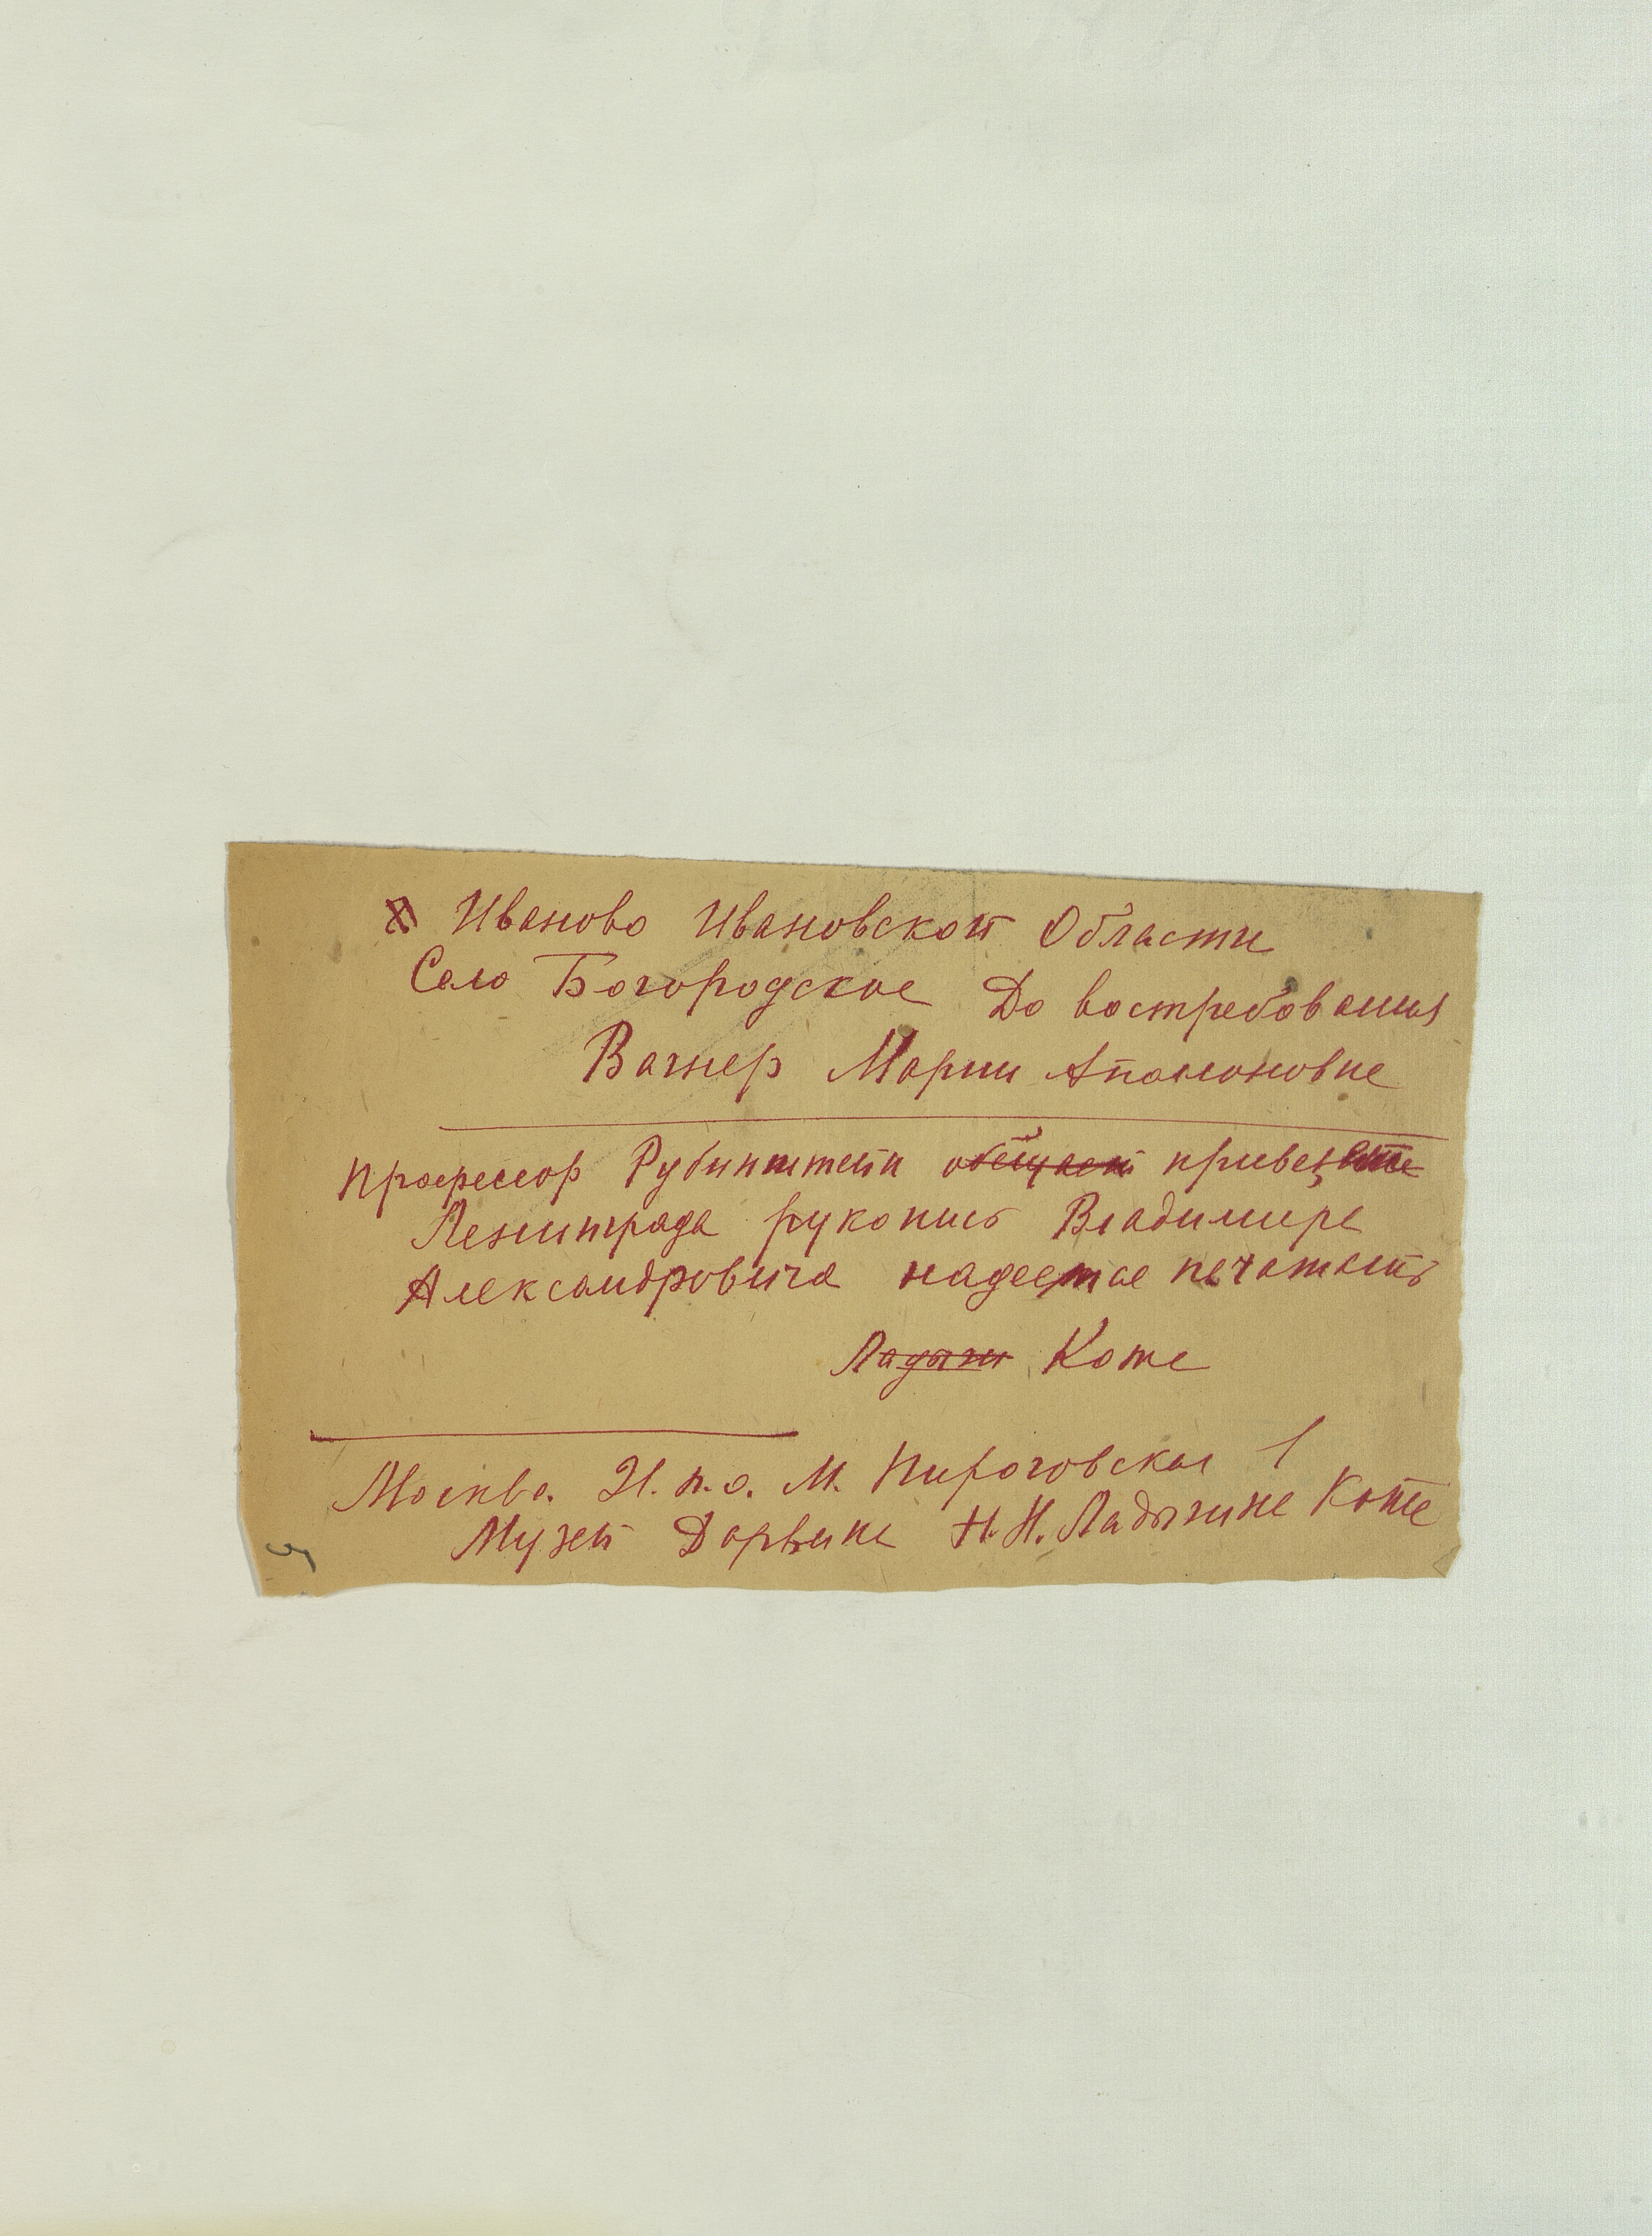 Иваново Ивановской Области
Село Богородское До востребования
Вагнер Марии Аполоновне
Профессор Рубинштейн обещает привез
Ленинграда рукопись Владимира
Александровича надеется печатать
Ладыги Коте
Москва. М. Пироговская 1
Музей Дарвина Н. Н. Ладыгина Коте